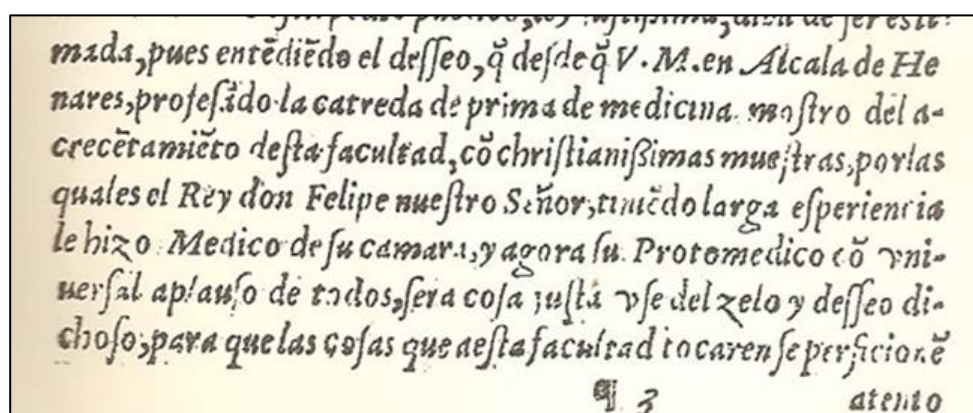 mada, pues entēdiēdo el deſſeo, q̄ deſde q̄ V. M. en Alcala de He
nares, profeſādo la catreda de prima de medicina moſtro del a-
crecētamiēto deſta facultad, cō chriſtianiſsimas mueſtras, por las
quales el Rey don Felipe nueſtro Señor, tiniēdo larga eſperiencia
le hizo Medico de ſu camara, y agora ſu Protomedico cō vni-
uerſal aplauſo de todos, ſera coſa juſta vſe del zelo y deſſeo di-
choſo, para que las coſas que a eſta facultad tocaren ſe perficionē
¶ 3 atento